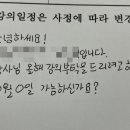 강의일정은 사정에 따라 변경
안녕하세요!
입니다.
강사님 올해 강의부탁을 드리려고
0월 0일 가능하신가요?